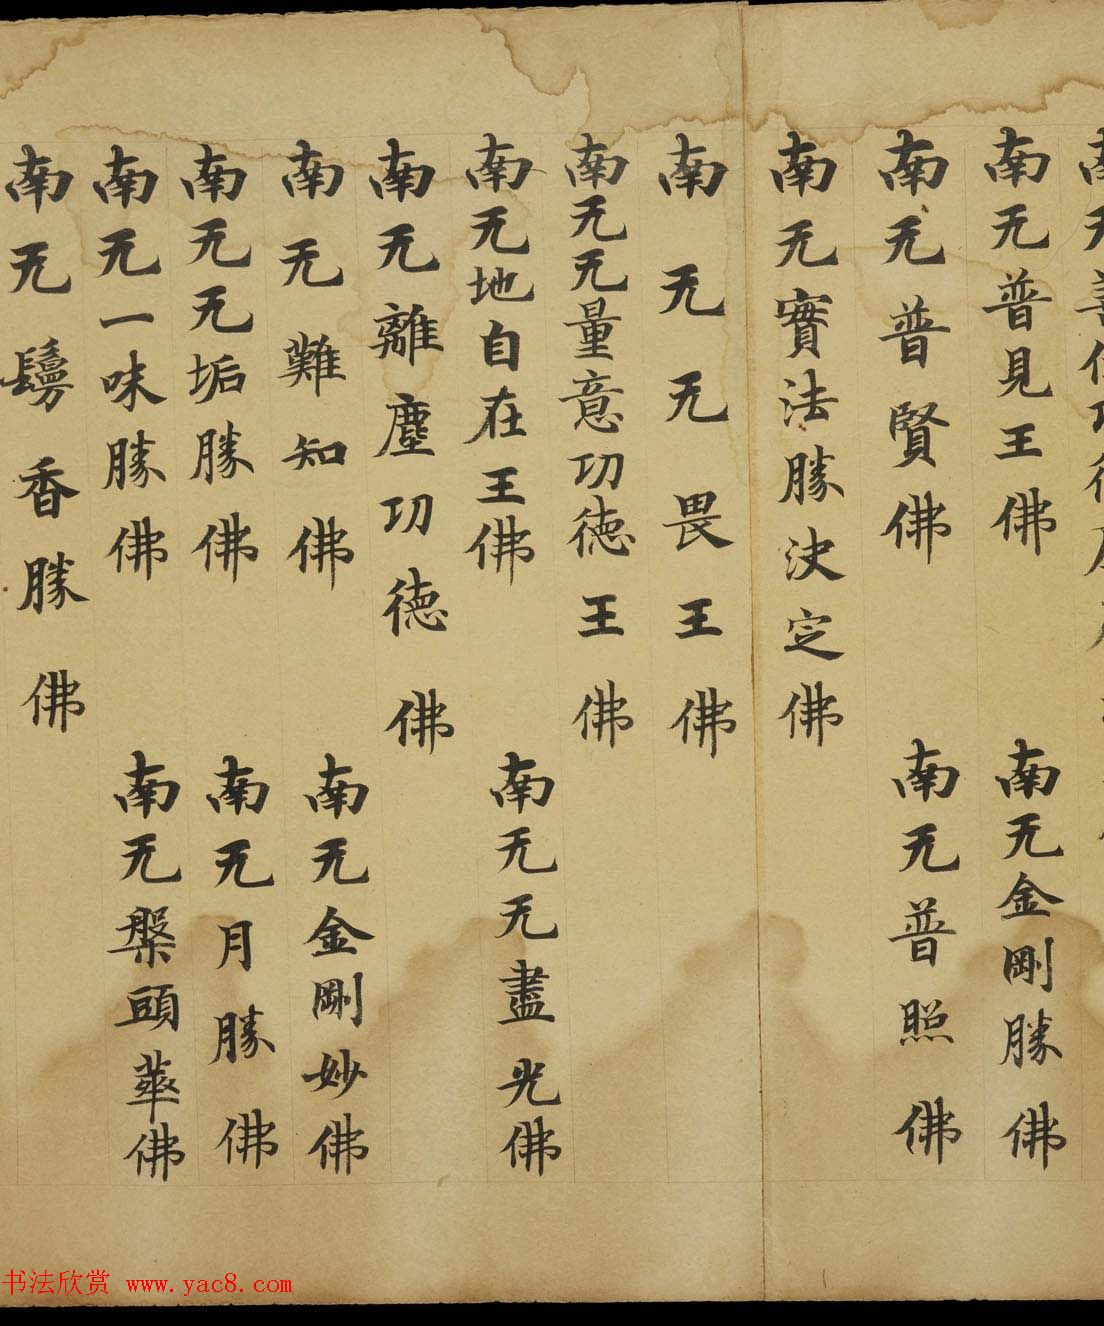 南无普見王佛　南无金剛勝佛
南无普賢佛　南无普照佛
南无實法勝決定佛
南无无畏王佛
南无无量意功德王佛
南无地自在王佛　南无无盡光佛
南无離塵功德佛
南无難知佛　南无金剛妙佛
南无无垢勝佛　南无月勝佛
南无一味勝佛　南无槃頭華佛
南无鬘香勝佛
书法欣赏 www.yac8.com